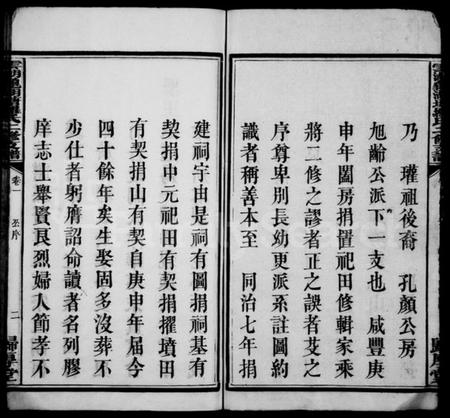 乃 瓘祖後裔 孔顏公房
旭齡公派下一支也 咸豐庚
申年闔房捐置祀田修輯家乘
將二修之謬者正之誤者芟之
序尊卑別長幼更派系註圖約
識者稱善本至 同治七年捐
建祠宇由是祠有圖捐祠基有
契捐中元祀田有契捐擢墳田
有契捐山有契自庚申年屆今
四十餘年矣生娶固多沒葬不
少仕者躬膺詔命讀者名列膠
庠志士舉賢良烈婦人節孝不
卷一
丕序
二
歸厚堂